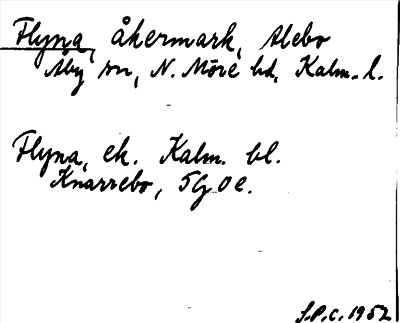 Flyna, åkermark, Alebo
Åby sn, N. Möre hd, Kalm. l.
Flyna, ek. Kalm. bl.
Knarrebo, 5G 0e.
S.P.C. 1952